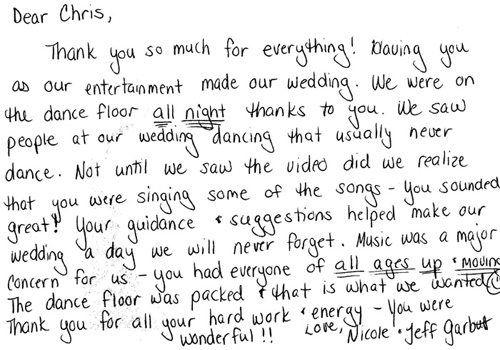 Dear Chris,
Thank you so much for everything! Having you
as our entertainment made our wedding. We were on
the dance floor all night thanks to you. We saw
people at our wedding dancing that usually never
dance. Not until we saw the video did we realize
that you were singing some of the songs - you sounded
great! Your guidance & suggestions helped make our
wedding a day we will never forget. Music was a major
concern for us - you had everyone of all ages up & moving
The dance floor was packed & that is what we wanted
Thank you for all your hard work & energy - You were
wonderful!! Love, Nicole & Jeff